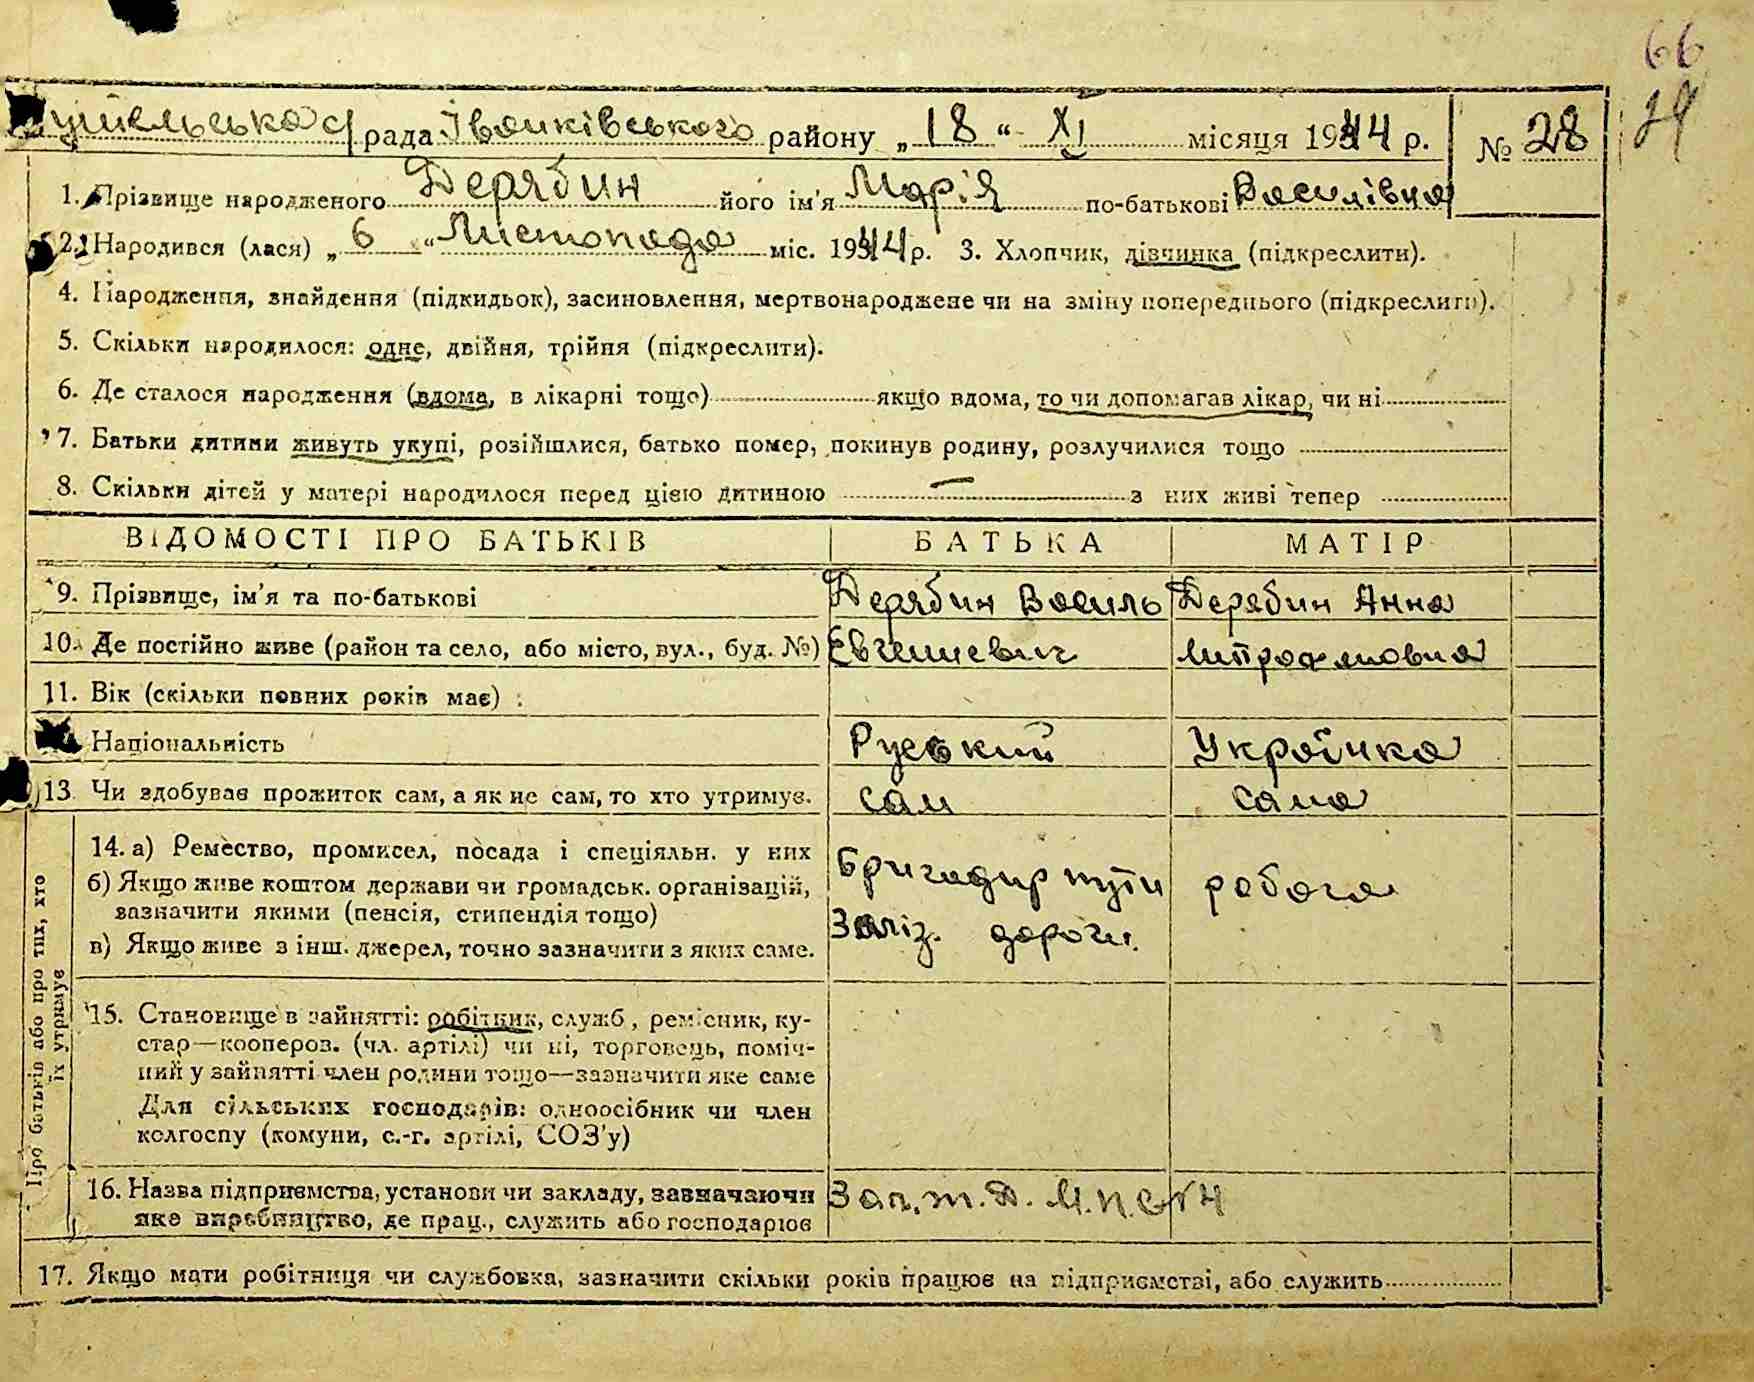 66
29
рада Іванківського району „18“ XI місяця 1944 р. № 28
1. Прізвище народженого Дерябин його ім'я Марія по-батькові Василівна
2. Народився (лася) „6“ Листопада міс. 1944 р. 3. Хлопчик, дівчинка (підкреслити).
4. Народження, знайдення (підкидьок), засиновлення, мертвонароджене чи на зміну попереднього (підкреслити).
5. Скільки народилося: одне, двійня, трійня (підкреслити).
6. Де сталося народження (вдома, в лікарні тощо) якщо вдома, то чи допомагав лікар, чи ні
7. Батьки дитини живуть укупі, розійшлися, батько помер, покинув родину, розлучилися тощо
8. Скільки дітей у матері народилося перед цією дитиною — з них живі тепер
ВІДОМОСТІ ПРО БАТЬКІВ БАТЬКА МАТІР
9. Прізвище, ім'я та по-батькові Дерябин Василь Дерябин Анна
10. Де постійно живе (район та село, або місто, вул., буд. №) Евгениевич Митрофановна
11. Вік (скільки повних років має) :
Національність Руський Українка
13 Чи здобуває прожиток сам, а як не сам, то хто утримує. сам сама
Про батьків або про тих, хто
їх утримує
14. а) Ремество, промисел, посада і спеціяльн. у них
б) Якщо живе коштом держави чи громадськ. організацій, бригадир пути робоча
зазначити якими (пенсія, стипендія тощо) Заліз. дороги.
в) Якщо живе з інш. джерел, точно зазначити з яких саме.
15. Становище в зайнятті: робітник, служб., ремісник, ку-
стар—коопероз. (чл. артілі) чи ні, торговець, поміч-
ний у зайнятті член родини тощо—зазначити яке саме
Для сільських господарів: одноосібник чи член
колгоспу (комуни, с.-г. артілі, СОЗ'у)
16. Назва підприємства, установи чи закладу, зазначаючи Зап. ж. д.
яке виробництво, де прац., служить або господарює
17. Якщо мати робітниця чи службовка, зазначити скільки років працює на підприємстві, або служить